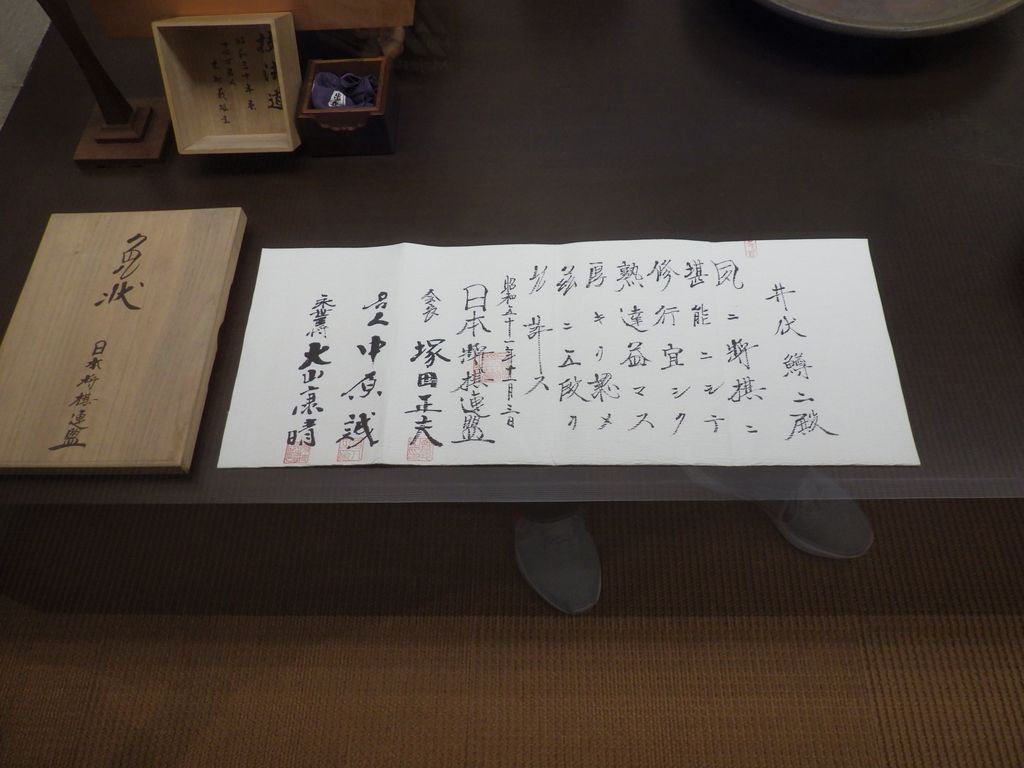 井伏鱒二殿
夙ニ将棋ニ
堪能ニシテ
修行宜シク
熟達益マス
厚キヲ認メ
茲ニ五段ヲ
允許ス
昭和五十一年十一月三日
日本将棋連盟
会長 塚田正夫
名人 中原誠
永世王将 大山康晴
免状
日本将棋連盟
昭和三十年春